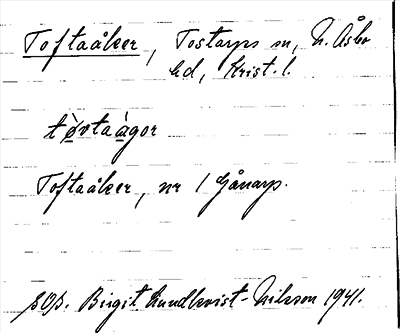 Toftaåker, Tostarps sn, N. Åsbo
hd, Krist. l.
tòvtaàgor
Toftaåker, nr 1 Gånarp.
Birgit Lundkvist-Nilsson 1941.